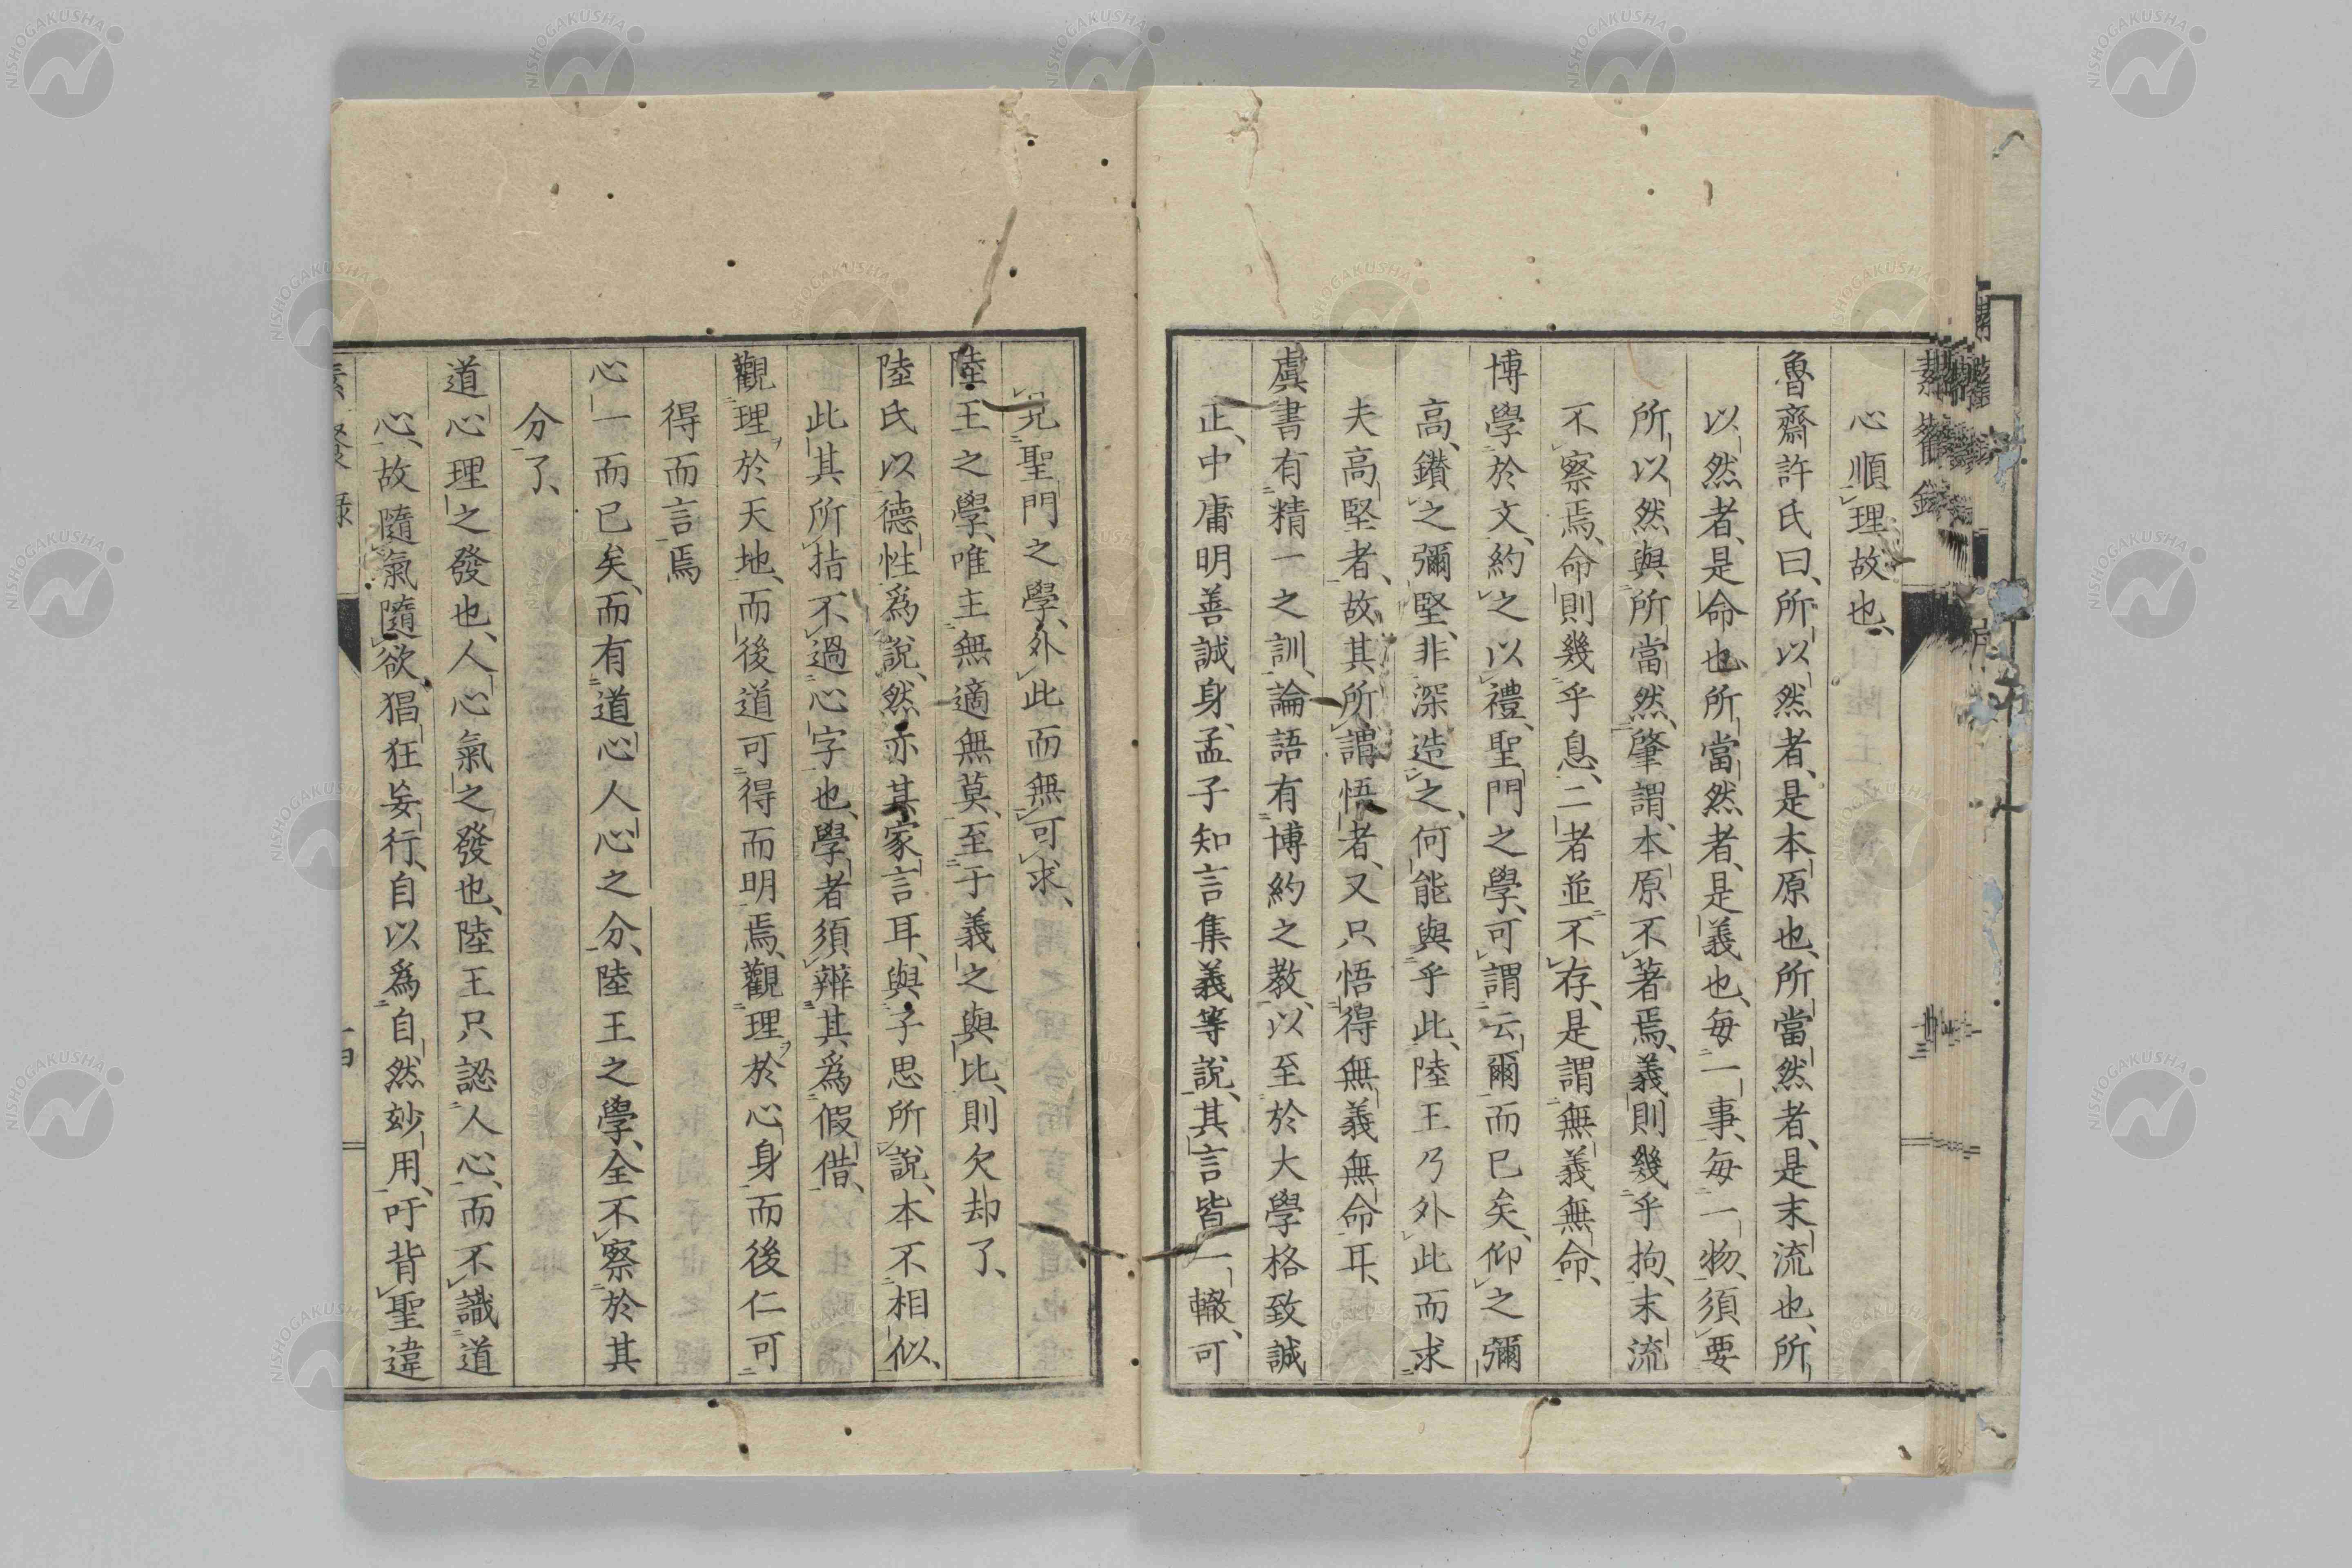 心順理故也、
魯齋許氏曰、所以然者、是本原也、所當然者、是末流也、所
以然者、是命也、所當然者、是義也、每一事、每一物、須要
所以然與所當然、肇謂、本原不著焉、義則幾乎拘、末流
不察焉、命則幾乎息、二者並不存、是謂無義無命、
博學於文、約之以禮、聖門之學、可謂云爾而已矣、仰之彌
高、鑽之彌堅、非深造之、何能與乎此、陸王乃外此而求
夫高堅者、故其所謂悟者、又只悟得無義無命耳、
虞書有精一之訓、論語有博約之教、以至於大學格致誠
正、中庸明善誠身、孟子知言集義等說、其言皆一轍、可
見聖門之學、外此而無可求、
陸王之學、唯主無適無莫、至于義之與比、則欠却了、
陸氏以德性爲說、然亦其家言耳、與子思所說、本不相似、
此其所指不過心字也、學者須辨其爲假借、
觀理於天地、而後道可得而明焉、觀理於心身而後仁可
得而言焉
心一而已矣、而有道心人心之分、陸王之學、全不察於其
分了、
道心理之發也、人心氣之發也、陸王只認人心、而不識道
心、故隨氣隨欲、猖狂妄行、自以爲自然妙用、吁背聖違
NISHOGAKUSHA